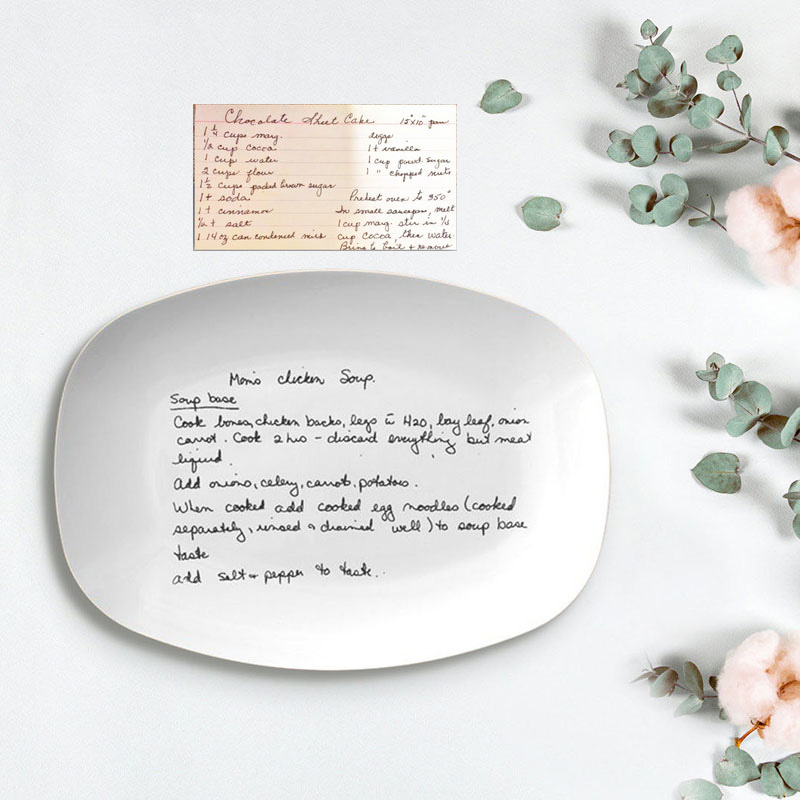 Chocolate Sheet Cake 15"x10" pan
1 1/4 cups marg. 2 eggs
1/2 cup cocoa 1 t vanilla
1 cup water 1 cup powd. sugar
2 cups flour 1 " chopped nuts
1 1/2 cups packed brown sugar
1 t soda Preheat oven to 350°
1 t cinnamon In small saucepan, melt
1/2 t salt 1 cup marg. stir in 1/4
1 14 oz can condensed cup cocoa, then water
Bring to boil & remove
Mom's chicken Soup.
Soup base
Cook bones, chicken backs, legs c̄ H2O, bay leaf, onion
carrot. Cook 2 hrs - discard everything but meat
liquid.
Add onions, celery, carrots, potatoes.
When cooked add cooked egg noodles (cooked
separately, rinsed & drained well) to soup base
taste
add salt & pepper to taste..